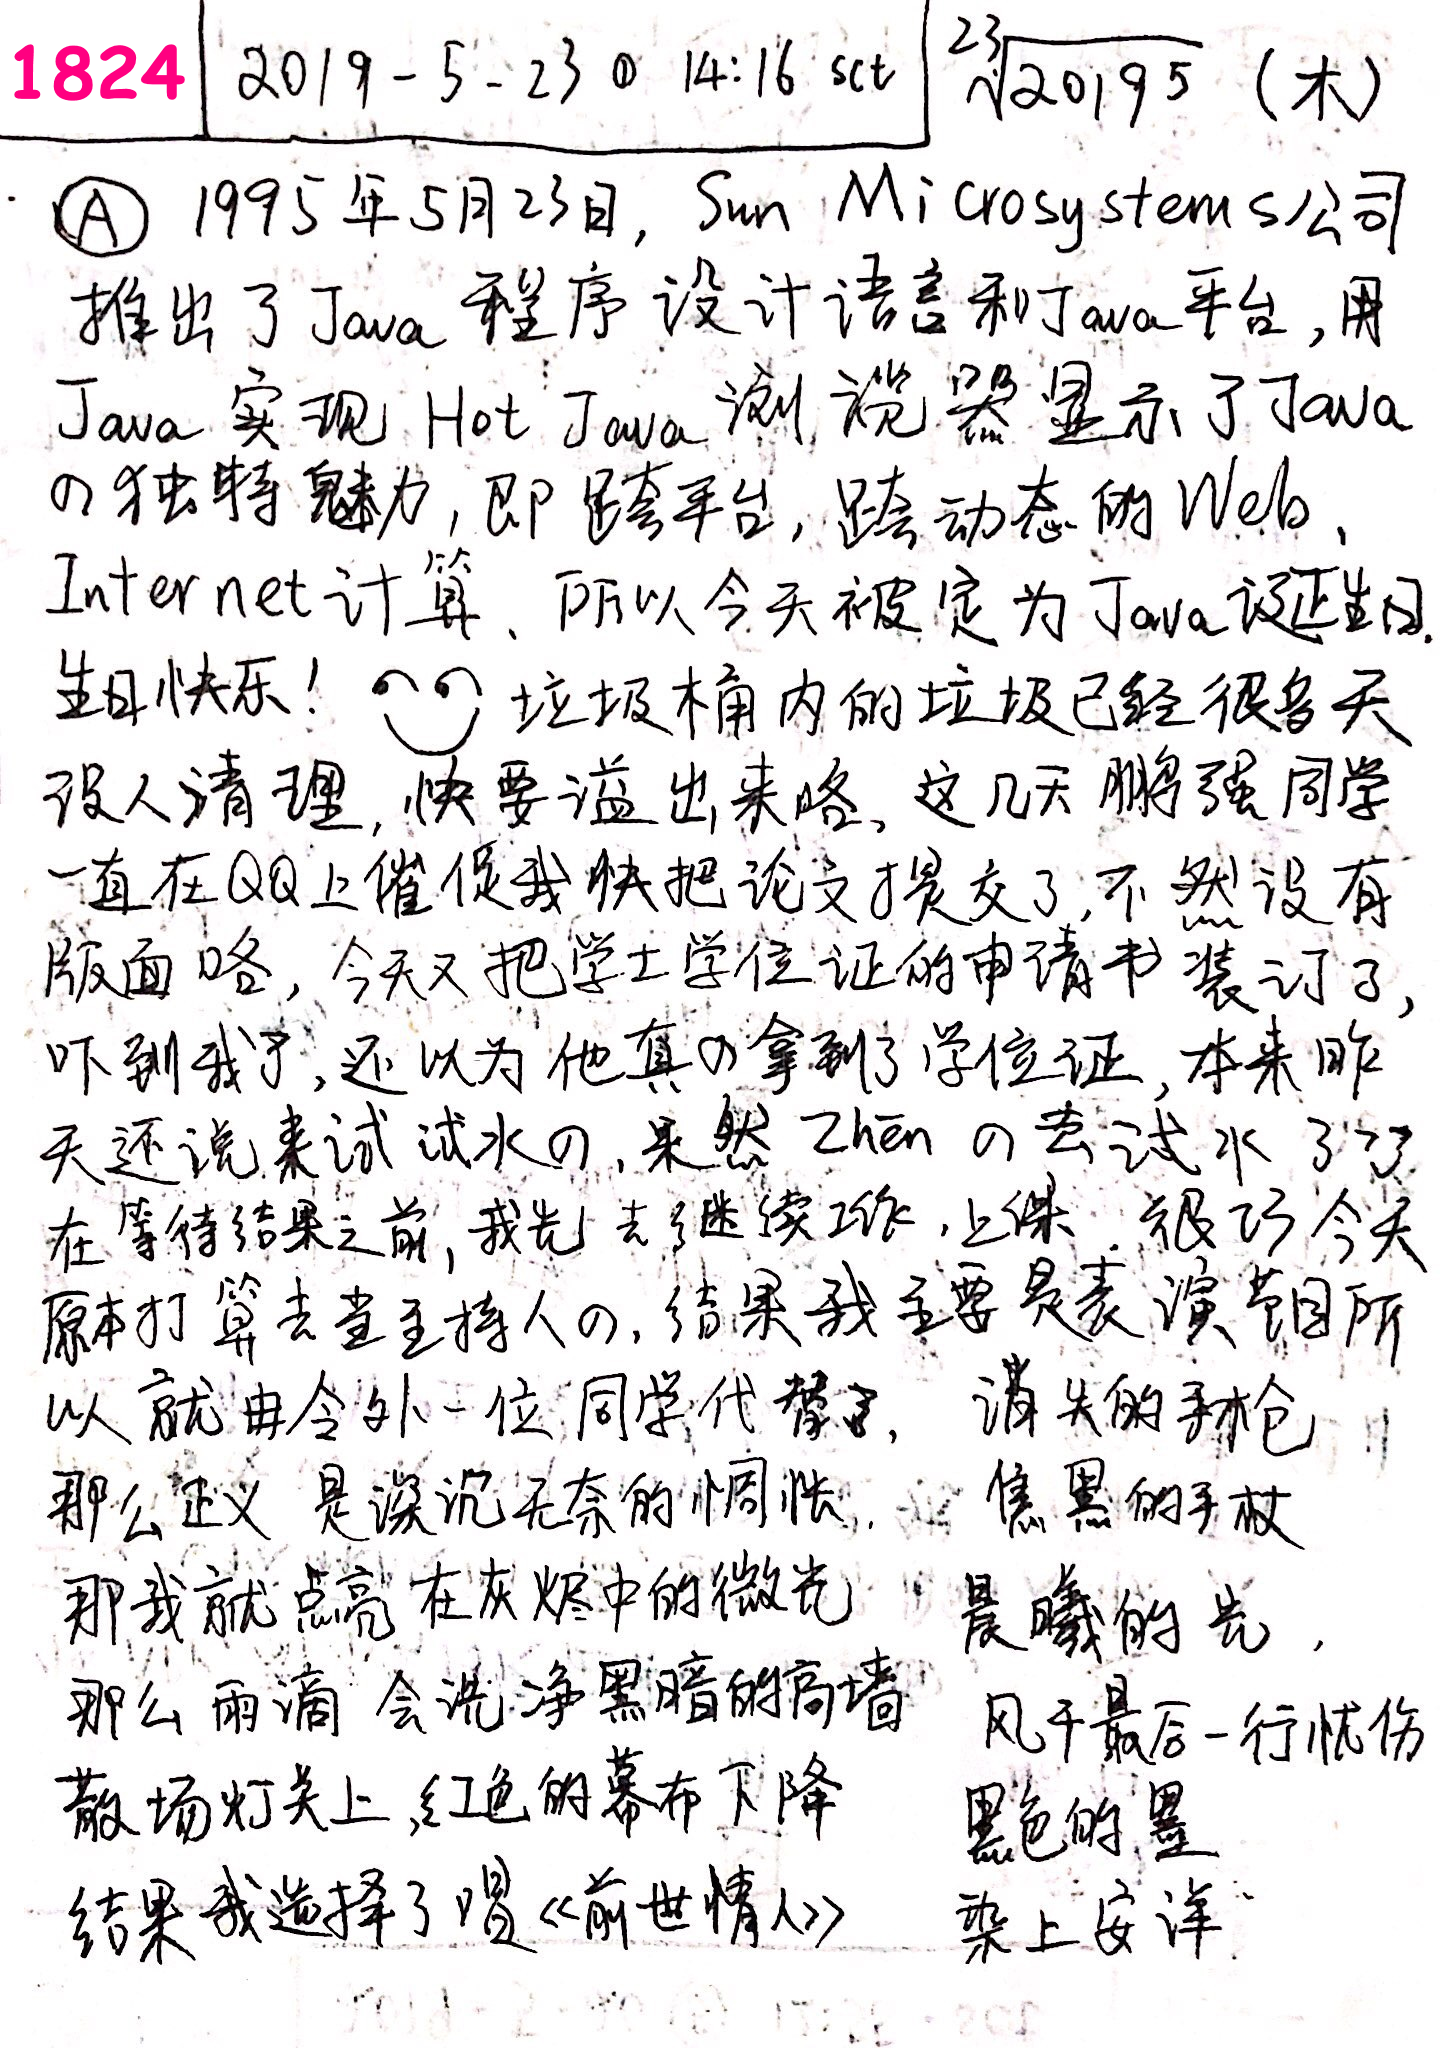 1824 2019-5-23 ① 14:16 sct ²³√20195 (木)
Ⓐ 1995年5月23日, Sun Microsystems公司
推出了Java 程序设计语言和Java平台,用
Java 实现 Hot Java 浏览器显示了Java
の独特魅力,即跨平台,跨动态的Web、
Internet计算、所以今天被定为Java诞生日.
生日快乐! 垃圾桶内的垃圾已经很多天
没人清理,快要溢出来咯、这几天鹏强同学
一直在QQ上催促我快把论文提交了,不然没有
版面咯,今天又把学士学位证的申请书装订了,
吓到我了,还以为他真の拿到了学位证,本来昨
天还说来试试水の,果然 Zhēn の去试水了了
在等待结果之前,我先去继续工作,上课.很巧今天
原本打算去当主持人の,结果我主要是表演节目所
以就由令外一位同学代替了, 消失的手枪
那么正义 是深沉无奈的惆怅. 焦黑的手杖
那我就点亮在灰烬中的微光 晨曦的光,
那么雨滴 会洗净黑暗的高墙 风干最后一行忧伤
散场灯关上,红色的幕布下降 黑色的墨
结果我选择了唱《前世情人》 染上安详